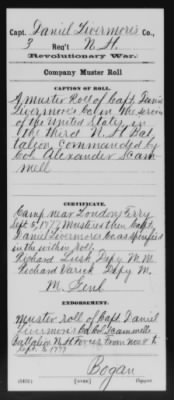 Capt. Daniel Livermore's Co.,
3 Reg't N.H.
Revolutionary War.
Company Muster Roll
CAPTION OF ROLL.
A muster Roll of Capt. Daniel
Livermore's Co. in the service
of the United States, in
the third N. H. Bat-
talion commanded by
Col. Alexander Scam-
mell
CERTIFICATE.
Camp near London Ferry
Sept. 5, 1777 Mustered then Capt.
Daniel Livermore's Co. as specified
in the within roll,
Richard Lush Depy M. M.
Richard Varick Depy M.
M. Genl
ENDORSEMENT.
Muster roll of Capt. Daniel
Livermore's Co. Col. Scammell's
Battalion N.H. Forces from
Sept. 5 1777
Bogan
Copyist